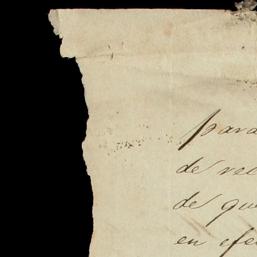 para
de rec
de que
en efe